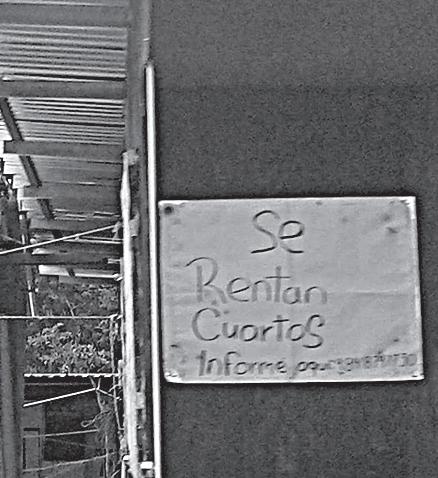 Se
Rentan
Cuartos
Informe aqui